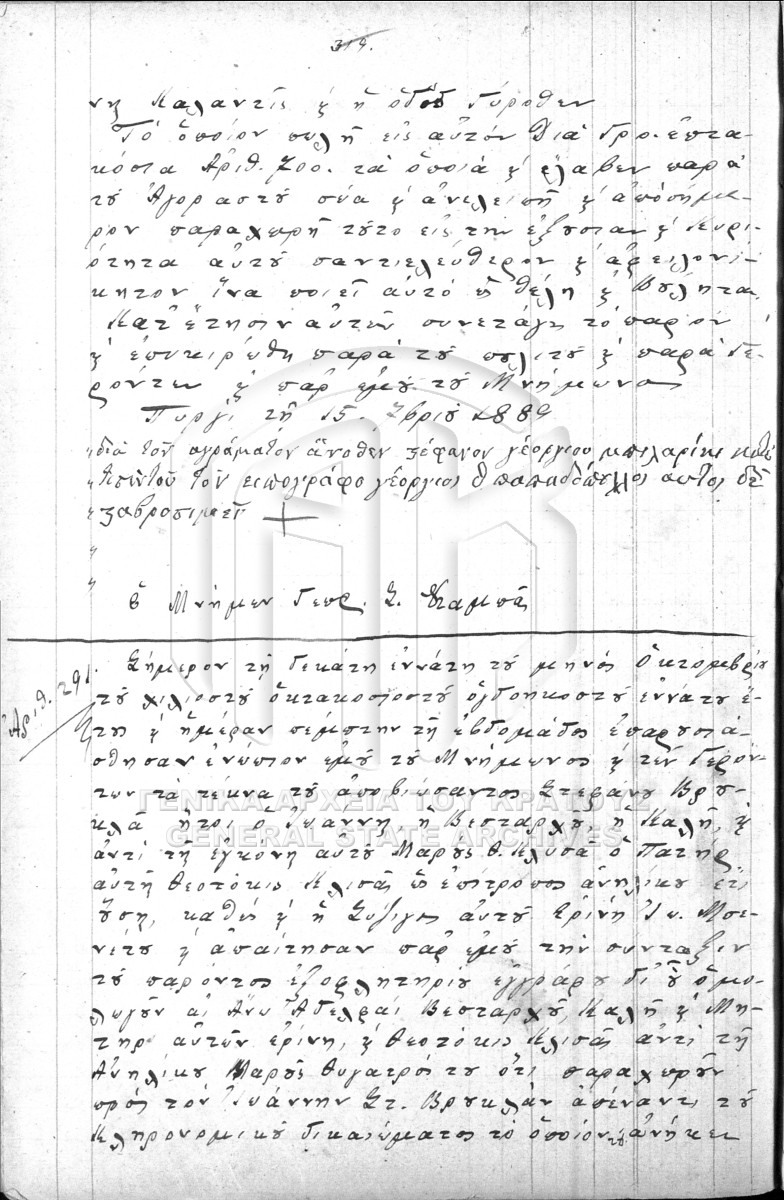 319.
νη Καλαντζῆς ϗ ἡ ὁδὸς Γύροθεν
Τὸ ὁποῖον πωλῆ εἰς αὐτὸν Διὰ Γρο. ἑπτα-
κόσια Ἀριθ. 700. τὰ ὁποῖα ϗ ἔλαβεν παρὰ
τοῦ Ἀγοραστοῦ σῶα ϗ ἀνελειπῆ ϗ ἀπὸ σήμε-
ρον παραχωρῆ τοῦτο εἰς τὴν ἐξουσίαν ϗ Κυρι-
ότητα αὐτοῦ παντελεύθερον ϗ ἀξειλονί-
κητον ἵνα ποιεῖ αὐτὸ ὡς θέλη ϗ Βούληται
Κατ' ἔτησιν αὐτῶν συνετάγη τὸ παρὸν
ϗ ἐπυκιρώθη παρὰ τοῦ πωλιτοῦ ϗ παρὰ Γε-
ρόντων ϗ παρ' ἐμοῦ τοῦ Μνήμωνος
Πυργὶ τῆ 15 7βρίου 1889
διὰ τὸν αγράματον ἄνοθεν στέφανον γέοργιου μπιλαρίκι κατὰ
τὸν ειπογράφο γέοργιος Θ παπαδόπουλος αυτος δὲ
σταβροσιμεῖ +
ὁ Μνήμων Γεωρ. Σ. Σταμπᾶς
Ἀριθ. 291.
Σήμερον τῆ δεκάτη ἐννάτη τοῦ μηνὸς Ὀκτομβρίου
τοῦ χιλιοστοῦ ὀκτακοσιοστοῦ ὀγδοηκοστοῦ ἐννάτου ἔ-
τους ϗ ἡμέραν πέμπτην τῆ ἑβδομάδος ἐπαρουσιά-
σθησαν ἐνώπιον ἐμοῦ τοῦ Μνήμωνος ϗ τῶν Γερόν-
των τὰ τέκνα τοῦ ἀποβιώσαντος Στεφάνου Βρου-
κλᾶ ἤτοι ὁ Ἰωάννη, ἡ Βεσταρχοῦ, ἡ Καλῆ, ϗ
ἀντὶ τῆ ἐγκονη αὐτοῦ Μαροῦς θ. Κλυσᾶ ὁ Πατὴρ
αὐτῆ Θεοτόκις Κλισᾶς ὡς ἐπίτροπος ἀνηλίκου ἔτι
οὔση, καθὼς ϗ ἡ Σύζιγος αὐτοῦ Ἐρίνη Ἰω. Μσε-
νέτου ϗ ἀπαίτησαν παρ' ἐμοῦ τὴν συνταξιν
τοῦ παρόντος ἐξοφλητηρίου ἐγγράφου δι' οὗ ὁμο-
λωγοῦν αἱ Ἄνω Ἀδελφαὶ Βεσταρχοῦ, Καλῆ ϗ Μή-
τηρ αὐτῶν ἐρίνη, ϗ θεοτόκις Κλισᾶς ἀντὶ τῆ
Ἀνηλίκου Μαροῦς θυγατρός του ὅτι παραχωροῦν
πρὸς τὸν Ἰωάννην Στ. Βρουκλὰν ἀπέναντι τοῦ
Κληρονομικοῦ δικαιώματος τὸ ὁποῖον τοῦ ἀνήκει
ΓΕΝΙΚΑ ΑΡΧΕΙΑ ΤΟΥ ΚΡΑΤΟΥΣ
GENERAL STATE ARCHIVES